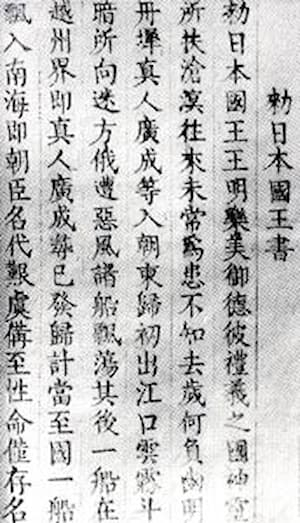 勑日本國王書
勑日本國王王明樂美御德彼禮義之國神靈
所扶滄溟往來未常爲患不知去歲何負幽明
丹墀真人廣成等入朝東歸初出江口雲霧斗
暗所向迷方俄遭惡風諸船飄蕩其後一船在
越州界即真人廣成尋已發歸計當至國一船
飄入南海即朝臣名代艱虞備至性命僅存名